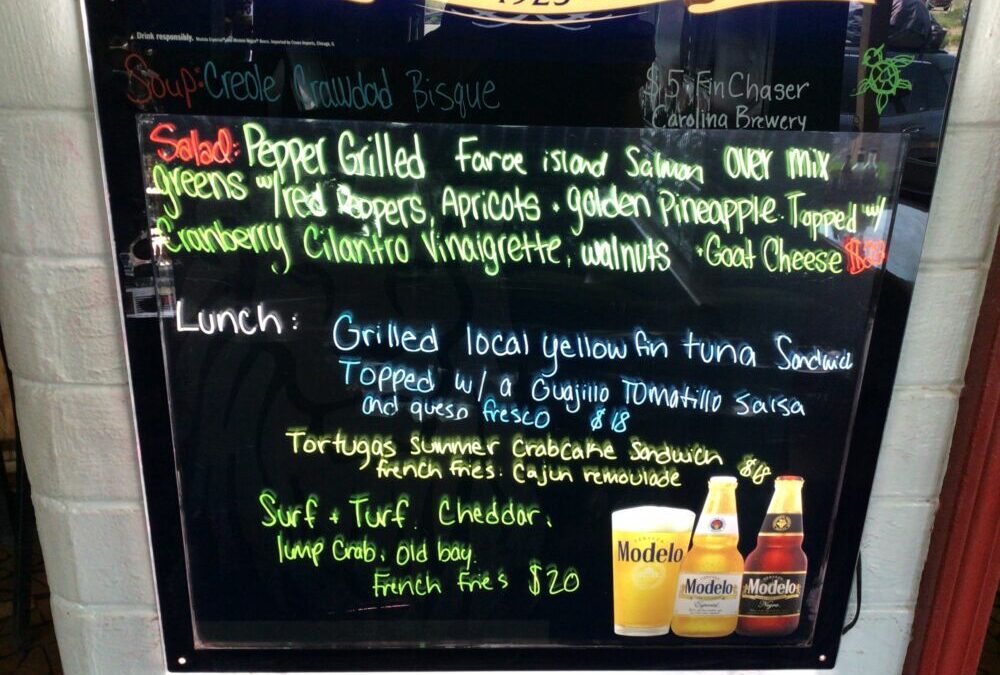 1925
Drink responsibly.
Soup: Creole Crawdad Bisque
$5 · Fin Chaser
Carolina Brewery
Salad: Pepper Grilled Faroe island Salmon over mix
greens w/ red Peppers, Apricots + golden Pineapple. Topped w/
Cranberry Cilantro Vinaigrette, walnuts + Goat Cheese
Lunch:
Grilled local yellow fin tuna Sandwich
Topped w/ a Guajillo Tomatillo Salsa
and queso fresco $18
Tortugas Summer Crabcake Sandwich
french fries. Cajun remoulade
Surf + Turf. Cheddar,
lump Crab, old bay.
French Fries $20
Modelo
Modelo
Especial
Modelo
Negra